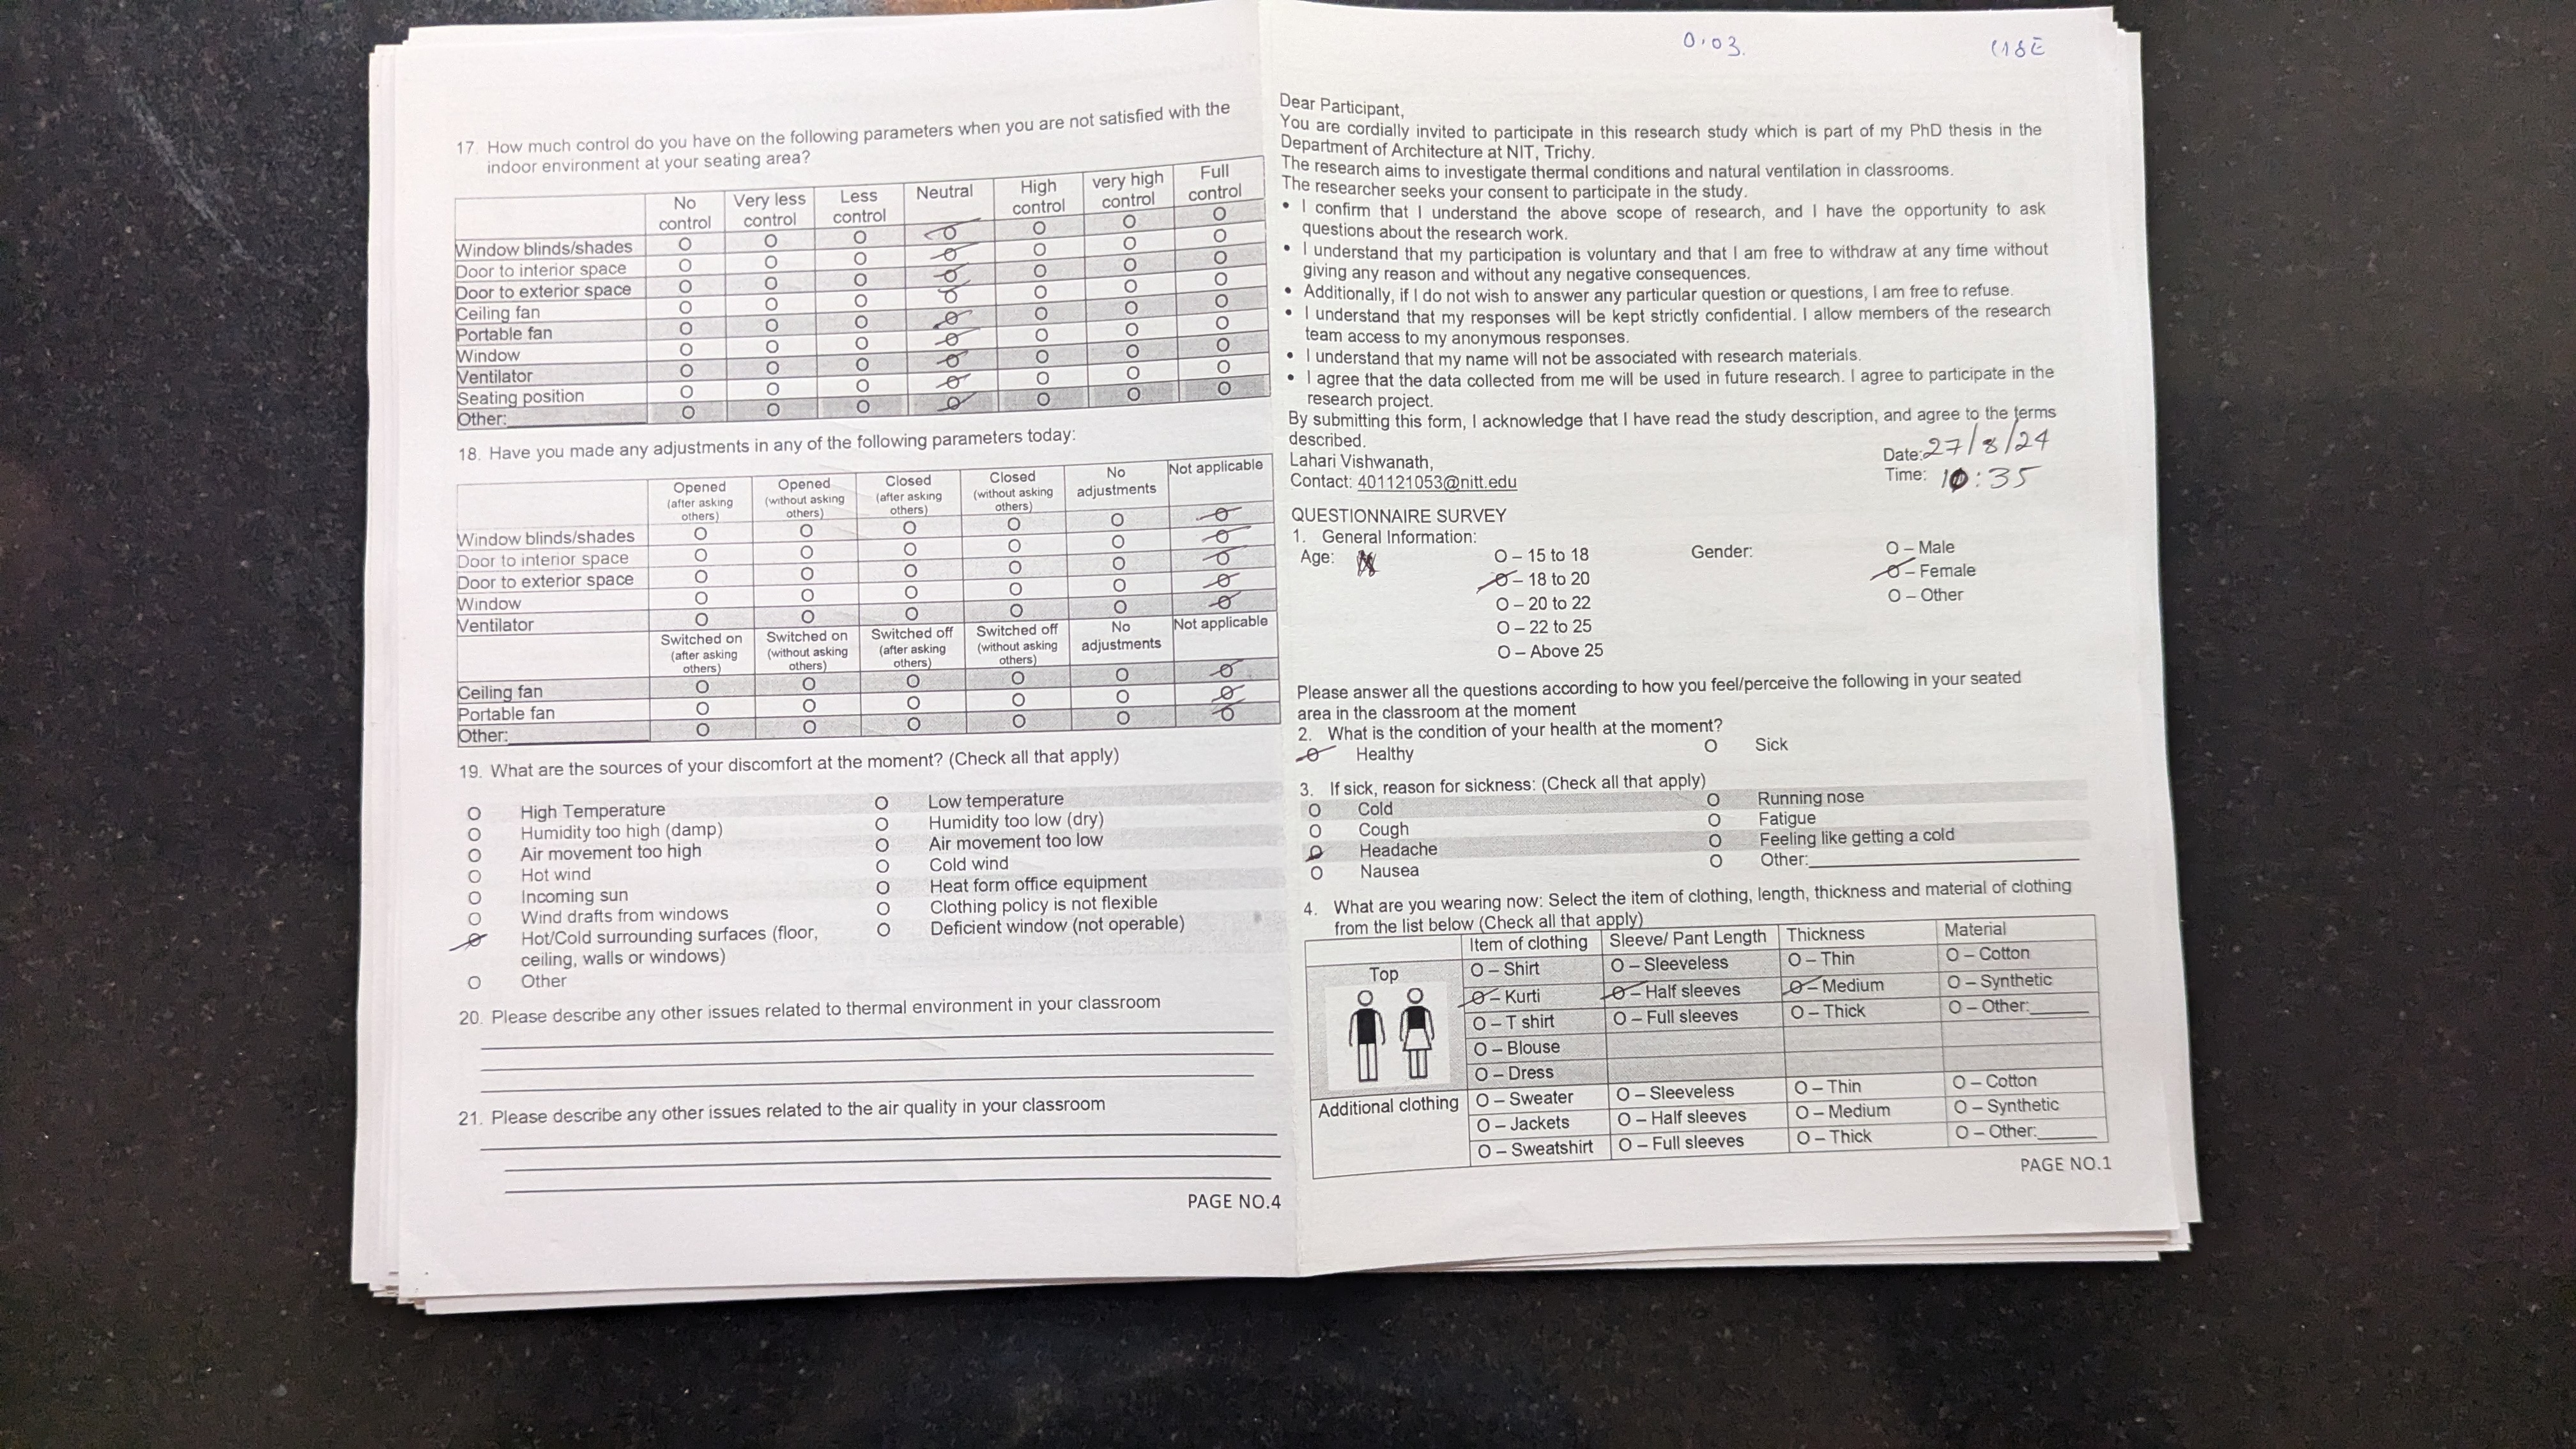 17. How much control do you have on the following parameters when you are not satisfied with the
indoor environment at your seating area?
No control Very less control Less control Neutral High control very high control Full control
Window blinds/shades O O O O O O O
Door to interior space O O O O O O O
Door to exterior space O O O O O O O
Ceiling fan O O O O O O O
Portable fan O O O O O O O
Window O O O O O O O
Ventilator O O O O O O O
Seating position O O O O O O O
Other: O O O O O O O
18. Have you made any adjustments in any of the following parameters today:
Opened (after asking others) Opened (without asking others) Closed (after asking others) Closed (without asking others) No adjustments Not applicable
Window blinds/shades O O O O O O
Door to interior space O O O O O O
Door to exterior space O O O O O O
Window O O O O O O
Ventilator O O O O O O
Switched on (after asking others) Switched on (without asking others) Switched off (after asking others) Switched off (without asking others) No adjustments Not applicable
Ceiling fan O O O O O O
Portable fan O O O O O O
Other: O O O O O O
19. What are the sources of your discomfort at the moment? (Check all that apply)
O High Temperature O Low temperature
O Humidity too high (damp) O Humidity too low (dry)
O Air movement too high O Air movement too low
O Hot wind O Cold wind
O Incoming sun O Heat form office equipment
O Wind drafts from windows O Clothing policy is not flexible
O Hot/Cold surrounding surfaces (floor, O Deficient window (not operable)
ceiling, walls or windows)
O Other
20. Please describe any other issues related to thermal environment in your classroom
21. Please describe any other issues related to the air quality in your classroom
PAGE NO.4
0.03.
Dear Participant,
You are cordially invited to participate in this research study which is part of my PhD thesis in the
Department of Architecture at NIT, Trichy.
The research aims to investigate thermal conditions and natural ventilation in classrooms.
The researcher seeks your consent to participate in the study.
• I confirm that I understand the above scope of research, and I have the opportunity to ask
questions about the research work.
• I understand that my participation is voluntary and that I am free to withdraw at any time without
giving any reason and without any negative consequences.
• Additionally, if I do not wish to answer any particular question or questions, I am free to refuse.
• I understand that my responses will be kept strictly confidential. I allow members of the research
team access to my anonymous responses.
• I understand that my name will not be associated with research materials.
• I agree that the data collected from me will be used in future research. I agree to participate in the
research project.
By submitting this form, I acknowledge that I have read the study description, and agree to the terms
described.
Lahari Vishwanath,
Contact: 401121053@nitt.edu
Date: 27/8/24
Time: 10:35
QUESTIONNAIRE SURVEY
1. General Information:
Age: O – 15 to 18 Gender: O – Male
O – 18 to 20 O – Female
O – 20 to 22 O – Other
O – 22 to 25
O – Above 25
Please answer all the questions according to how you feel/perceive the following in your seated
area in the classroom at the moment
2. What is the condition of your health at the moment?
O Healthy O Sick
3. If sick, reason for sickness: (Check all that apply)
O Cold O Running nose
O Cough O Fatigue
O Headache O Feeling like getting a cold
O Nausea O Other:
4. What are you wearing now: Select the item of clothing, length, thickness and material of clothing
from the list below (Check all that apply)
Item of clothing Sleeve/ Pant Length Thickness Material
Top O – Shirt O – Sleeveless O – Thin O – Cotton
O – Kurti O – Half sleeves O – Medium O – Synthetic
O – T shirt O – Full sleeves O – Thick O – Other:
O – Blouse
O – Dress
Additional clothing O – Sweater O – Sleeveless O – Thin O – Cotton
O – Jackets O – Half sleeves O – Medium O – Synthetic
O – Sweatshirt O – Full sleeves O – Thick O – Other:
PAGE NO.1